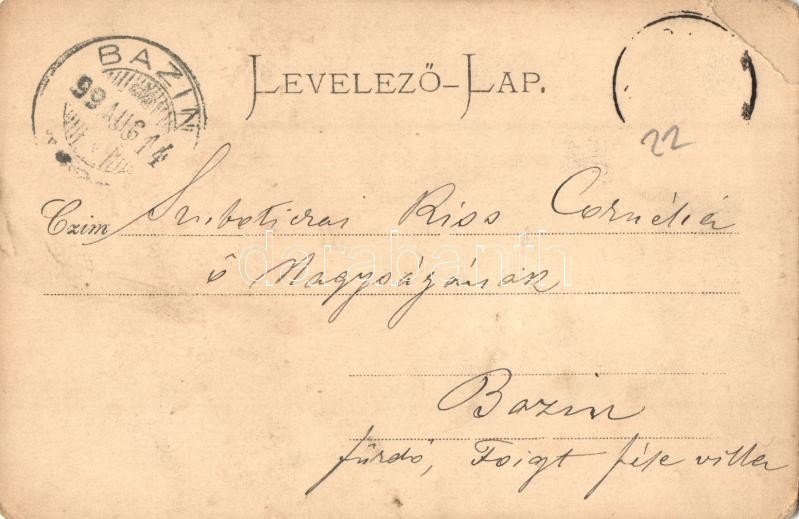 BAZIN
99 AUG 14
LEVELEZŐ-LAP.
22
Czim Szuboticzai Kiss Cornélia
ő Nagyságának
darabanth
Bazin
fürdő, Foigt féle villa